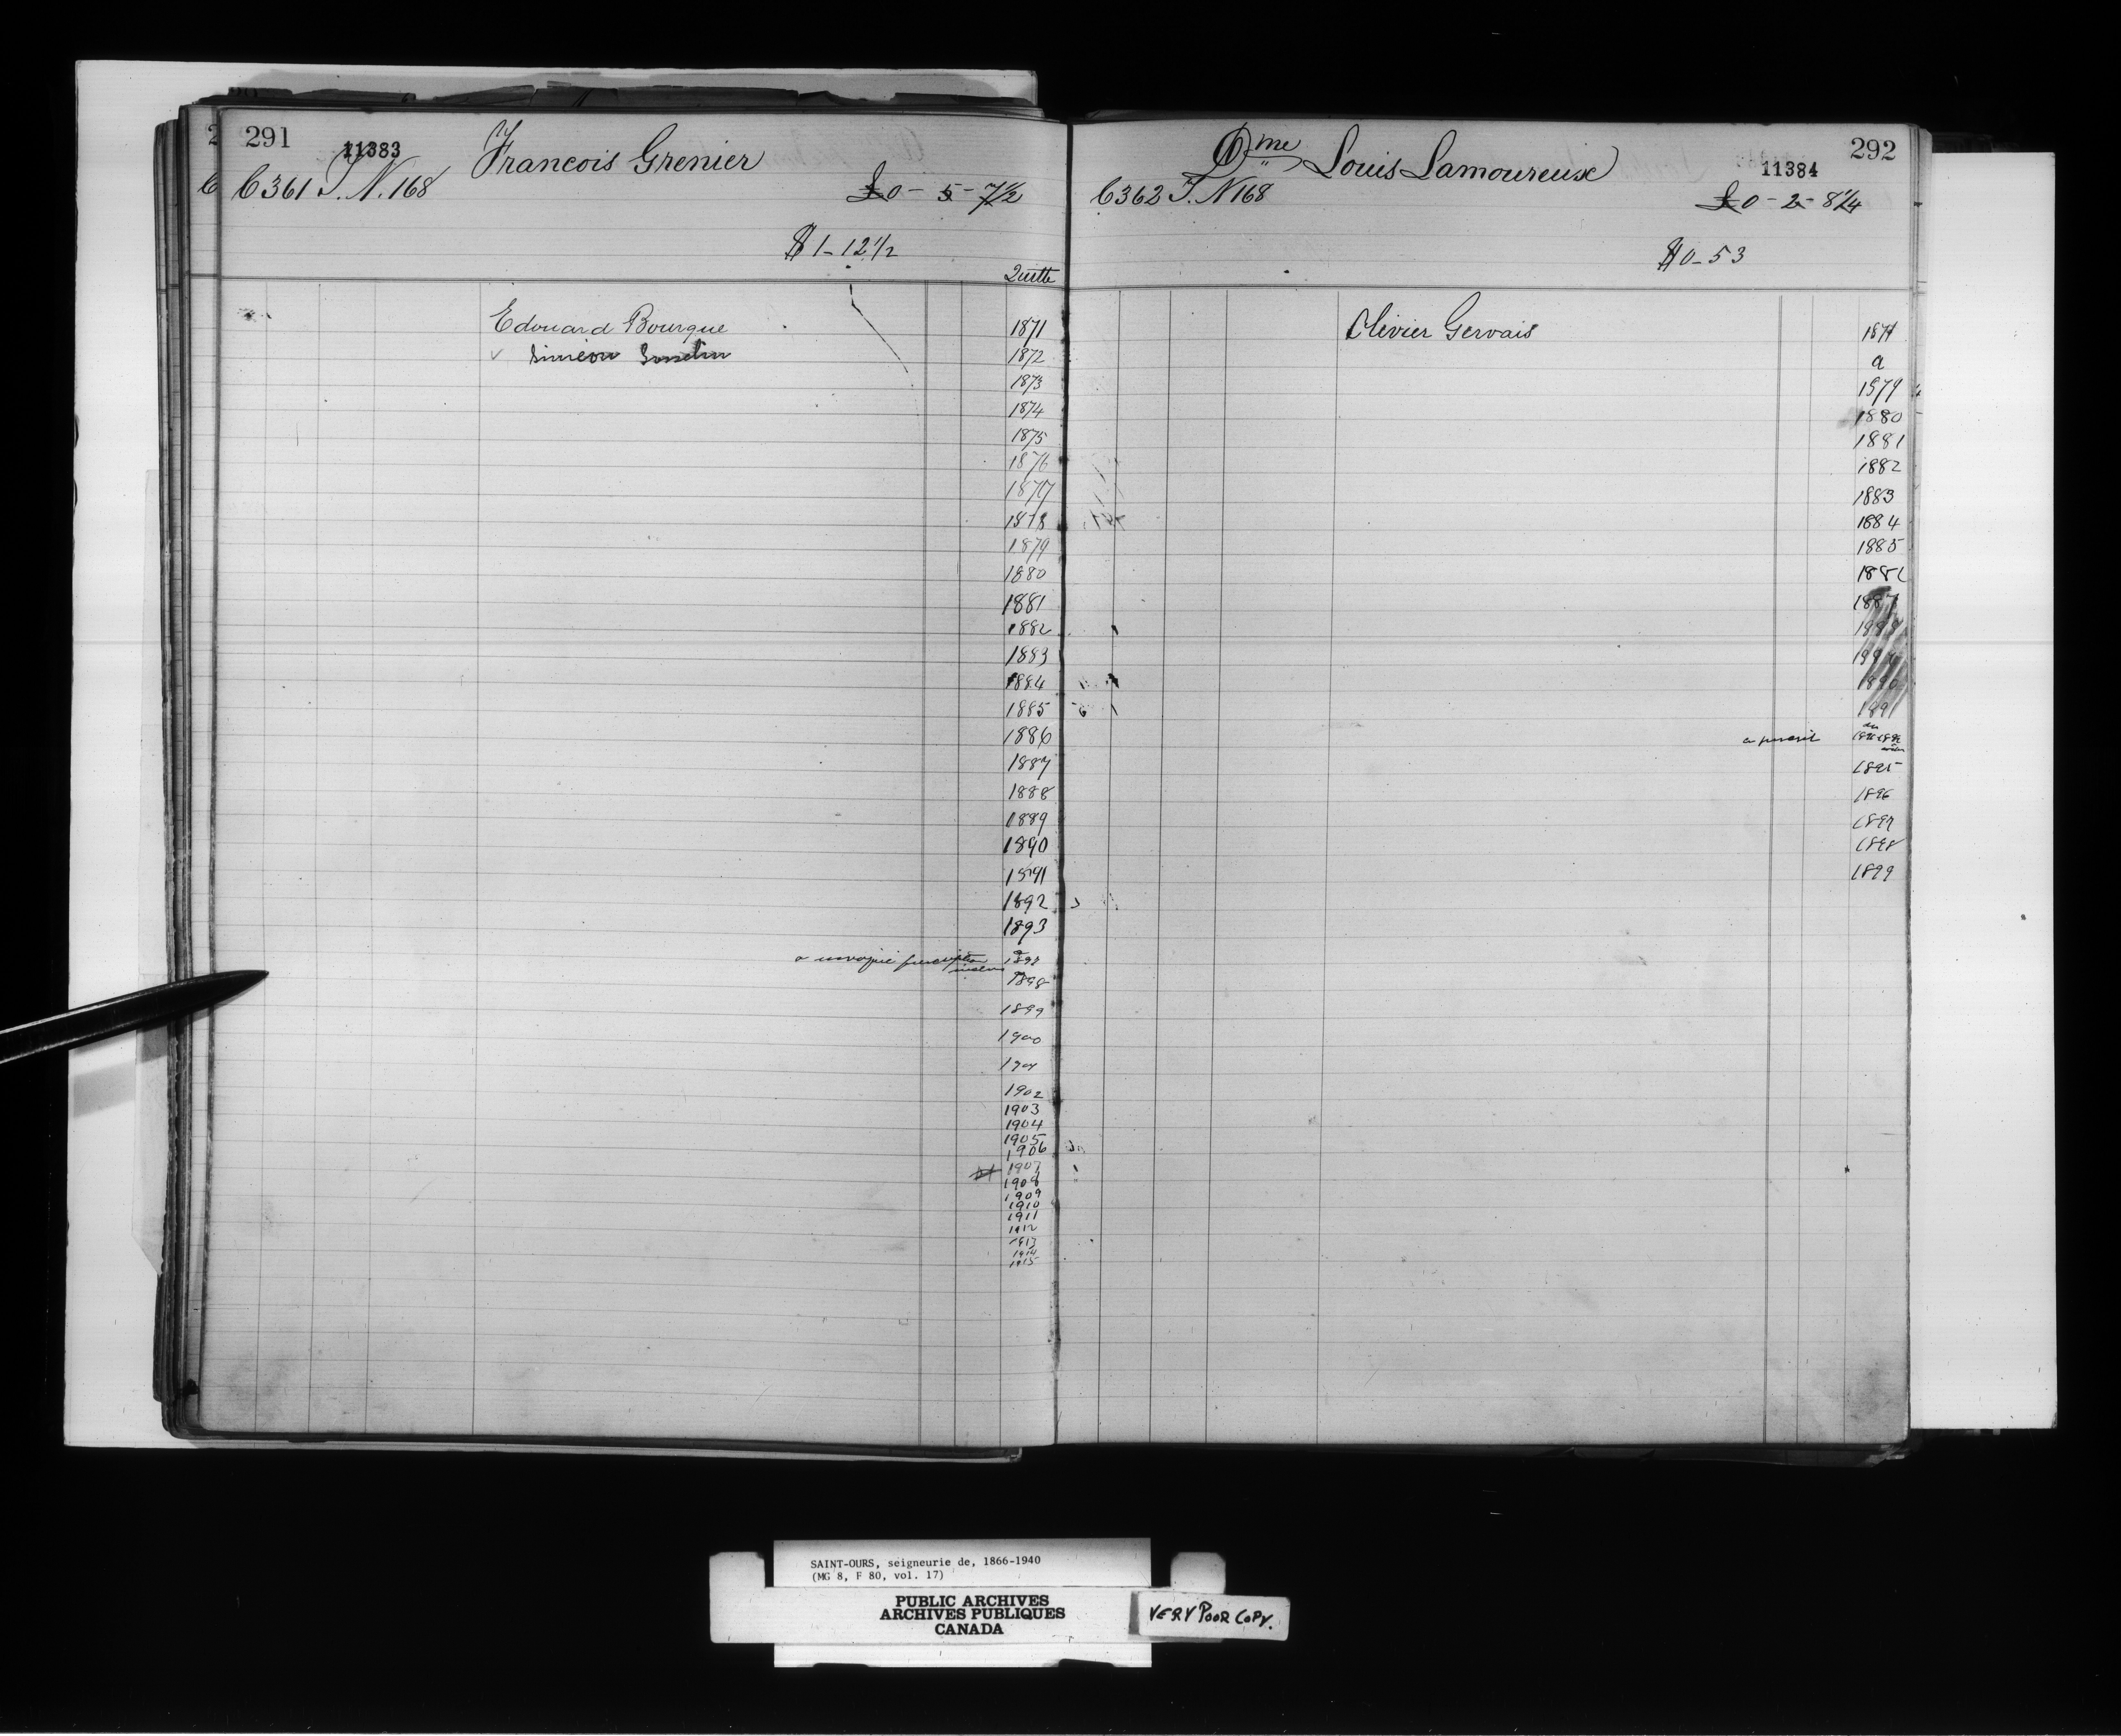 291
11383
Francois Grenier
C 361 T. N. 168
£0 - 5 - 7½
$1-12½
Quitte
Edouard Bourque
Siméon
1871
1872
1873
1874
1875
1876
1877
1878
1879
1880
1881
1882
1883
1884
1885
1886
1887
1888
1889
1890
1891
1892
1893
a
1898
1899
1900
1901
1902
1903
1904
1905
1906
1907
1908
1909
1910
1911
1912
1913
1914
1915
292
11384
Dme Louis Lamoureux
C 362 T. N 168
£0 - 2 - 8¼
$0-53
Olivier Gervais
1871
a
1879
1880
1881
1882
1883
1884
1885
1886
1887
1888
1889
1890
1891
1895
1896
1897
1898
1899
SAINT-OURS, seigneurie de, 1866-1940
(MG 8, F 80, vol. 17)
PUBLIC ARCHIVES
ARCHIVES PUBLIQUES
CANADA
VERY POOR COPY.